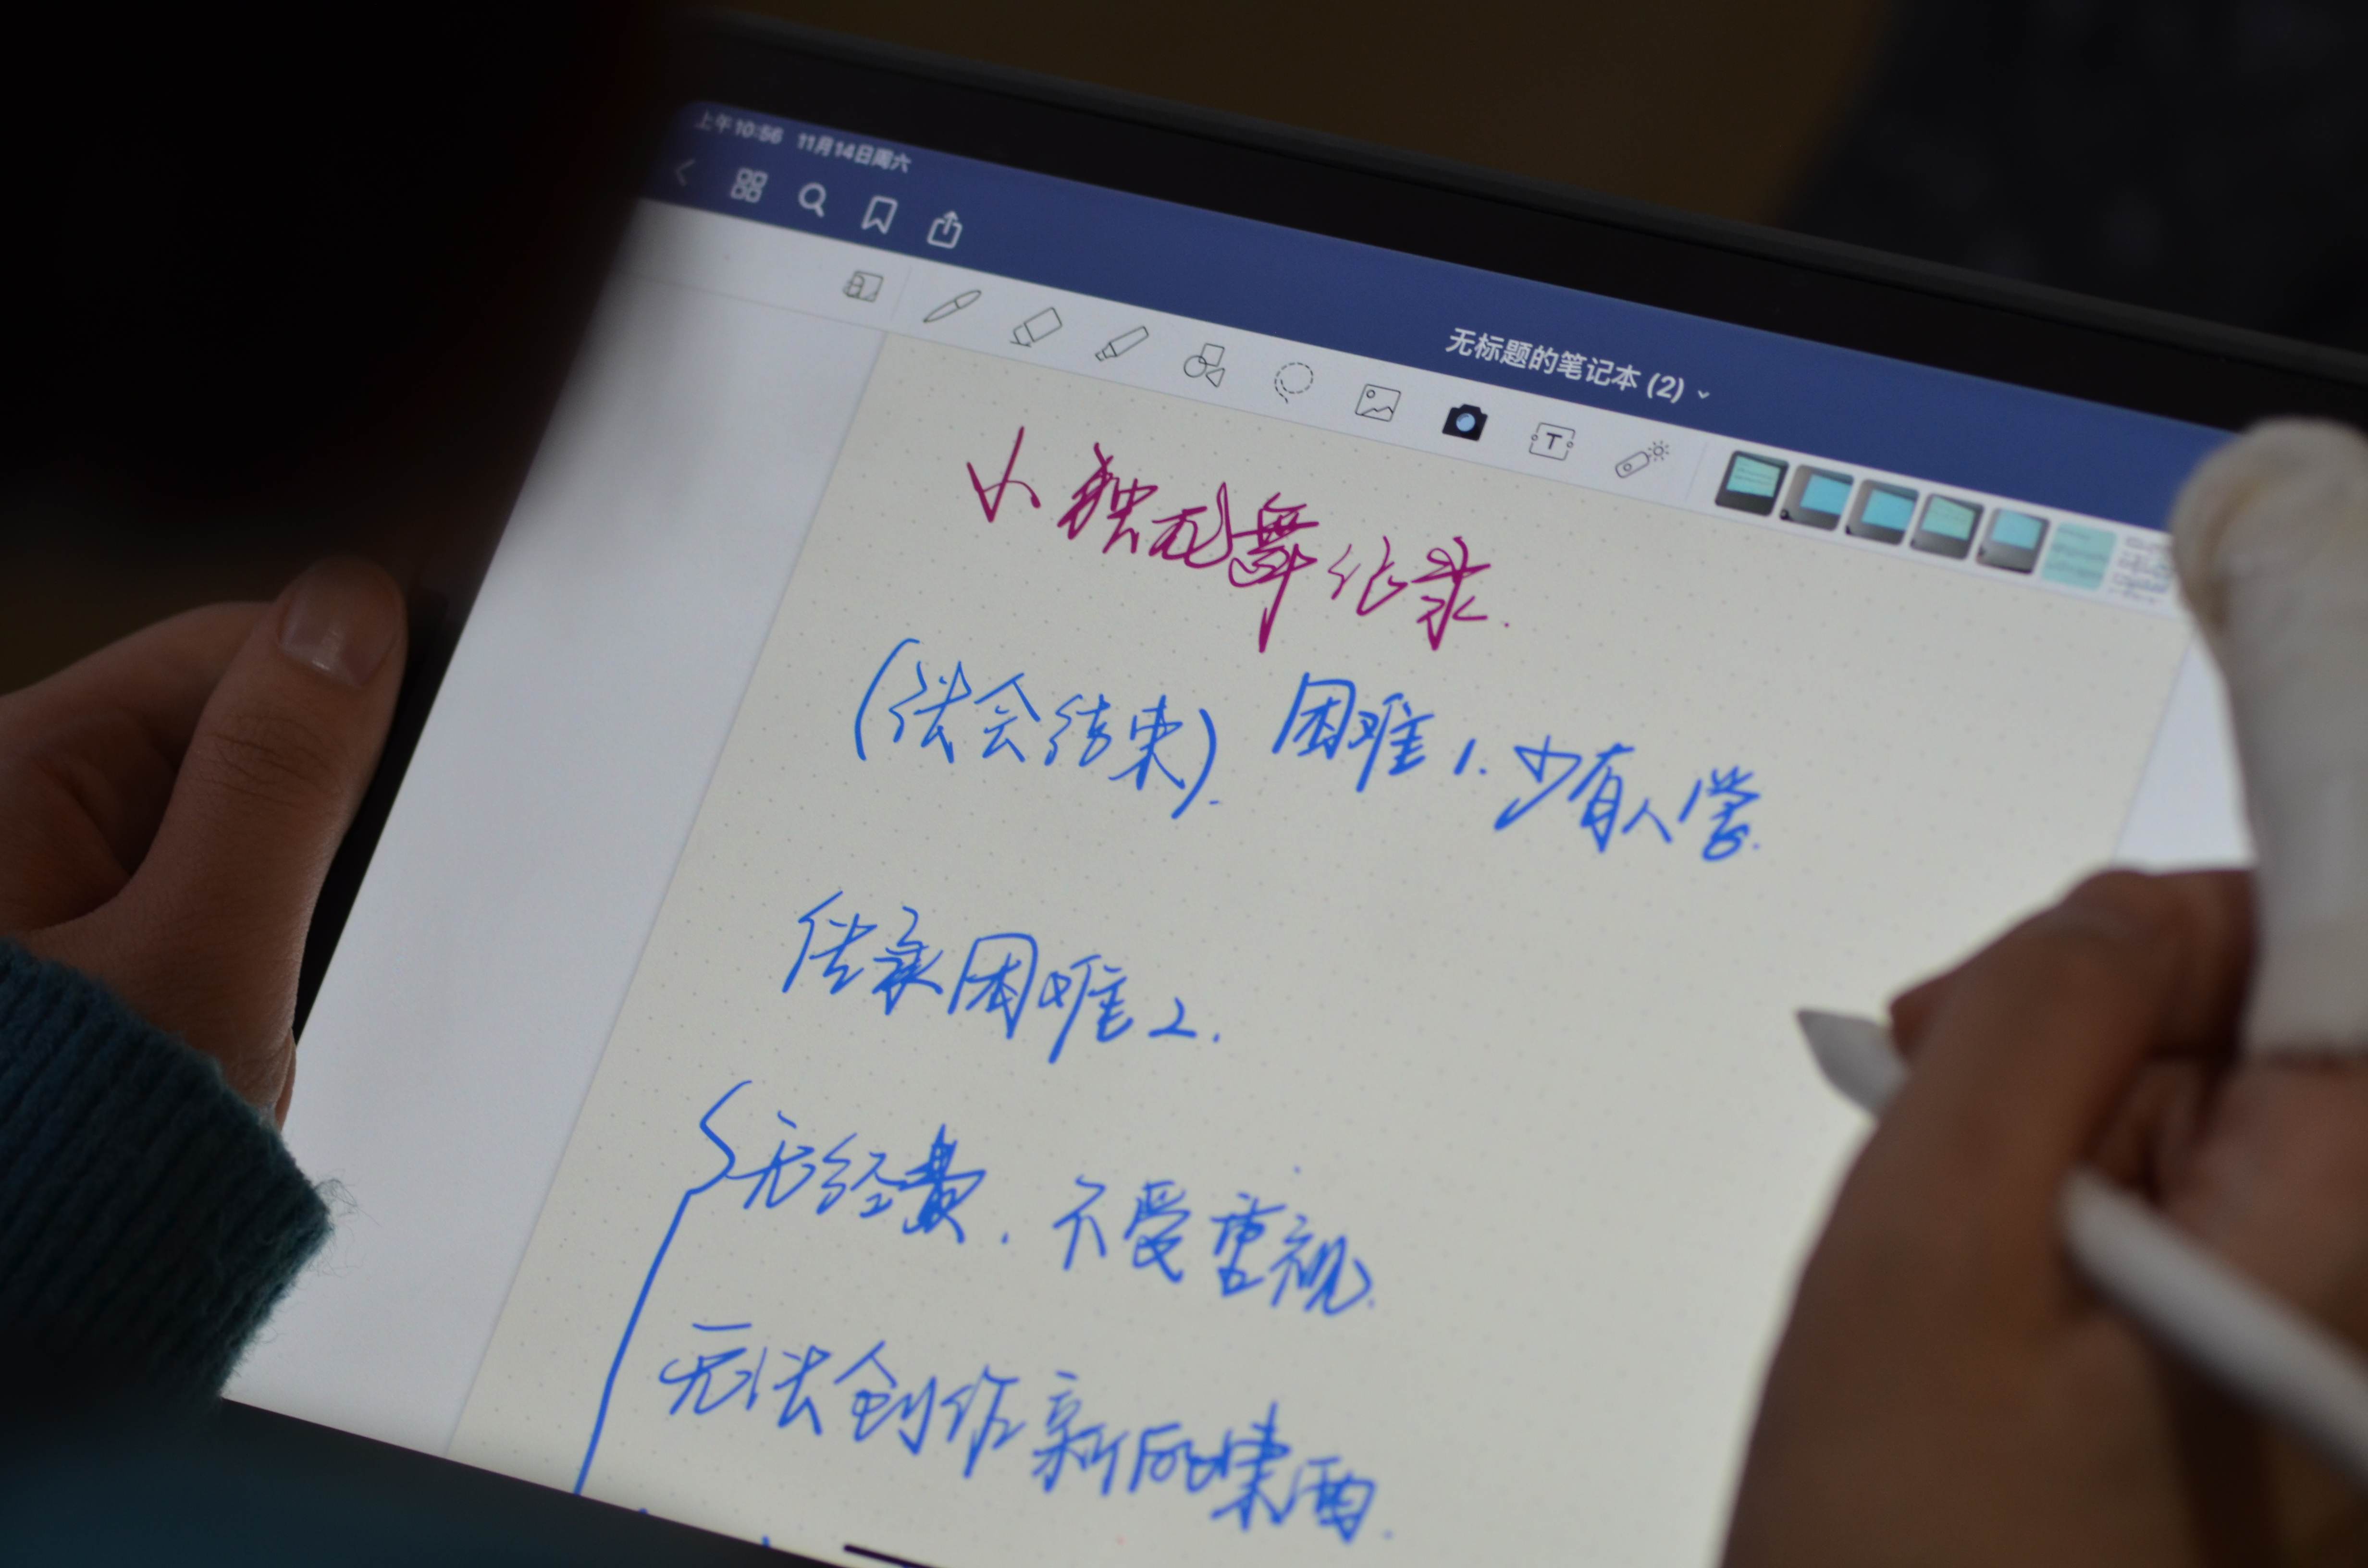 上午10:56 11月14日周六
无标题的笔记本 (2)
小独龙舞纪录.
(谈会结束). 困难 1. 少有人学.
传承困难 2.
无经费. 不受重视.
无法创作新的东西.